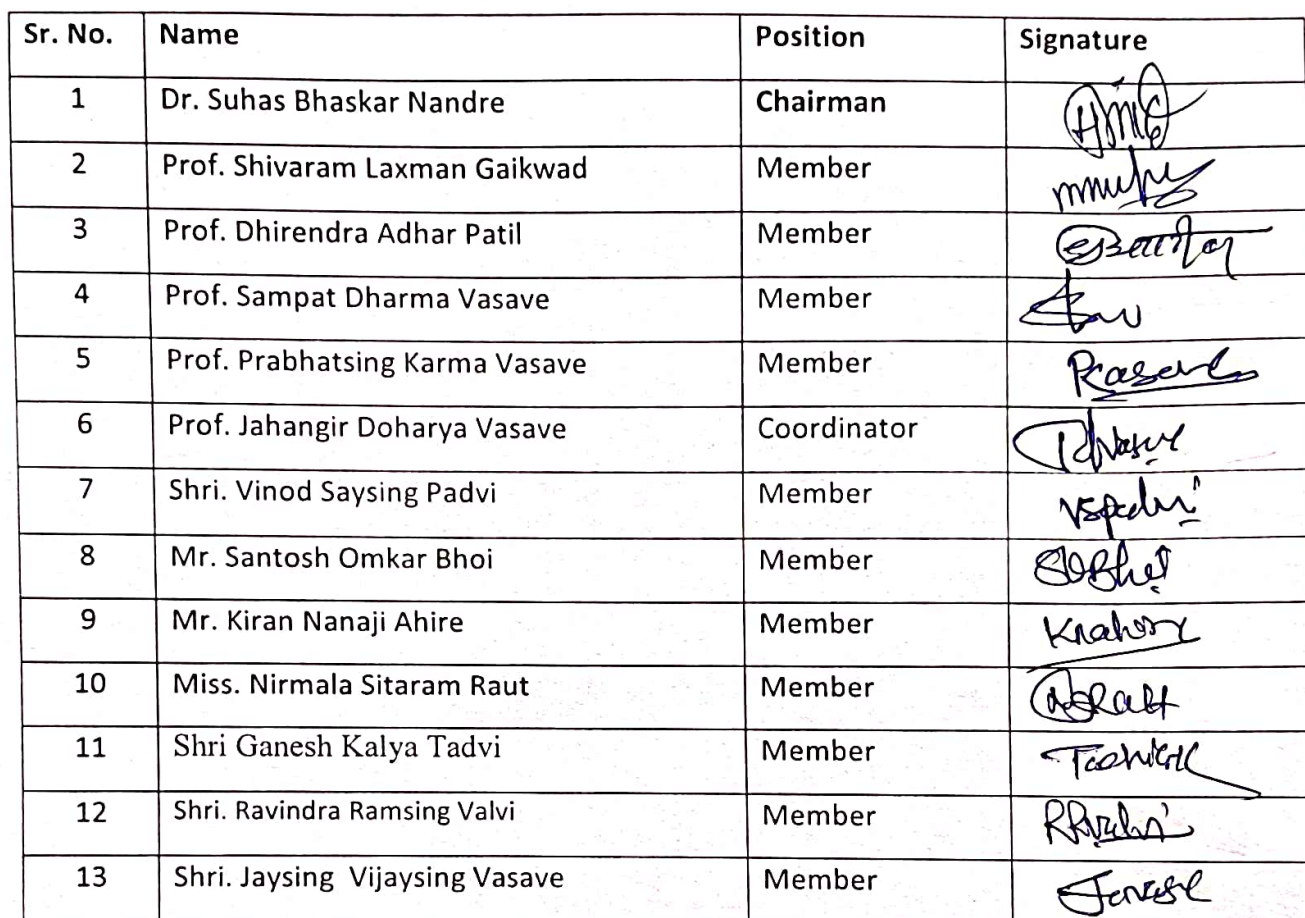 Sr. No. Name Position Signature
1 Dr. Suhas Bhaskar Nandre Chairman
2 Prof. Shivaram Laxman Gaikwad Member
3 Prof. Dhirendra Adhar Patil Member
4 Prof. Sampat Dharma Vasave Member
5 Prof. Prabhatsing Karma Vasave Member
6 Prof. Jahangir Doharya Vasave Coordinator
7 Shri. Vinod Saysing Padvi Member vspadvi
8 Mr. Santosh Omkar Bhoi Member
9 Mr. Kiran Nanaji Ahire Member
10 Miss. Nirmala Sitaram Raut Member
11 Shri Ganesh Kalya Tadvi Member
12 Shri. Ravindra Ramsing Valvi Member
13 Shri. Jaysing Vijaysing Vasave Member